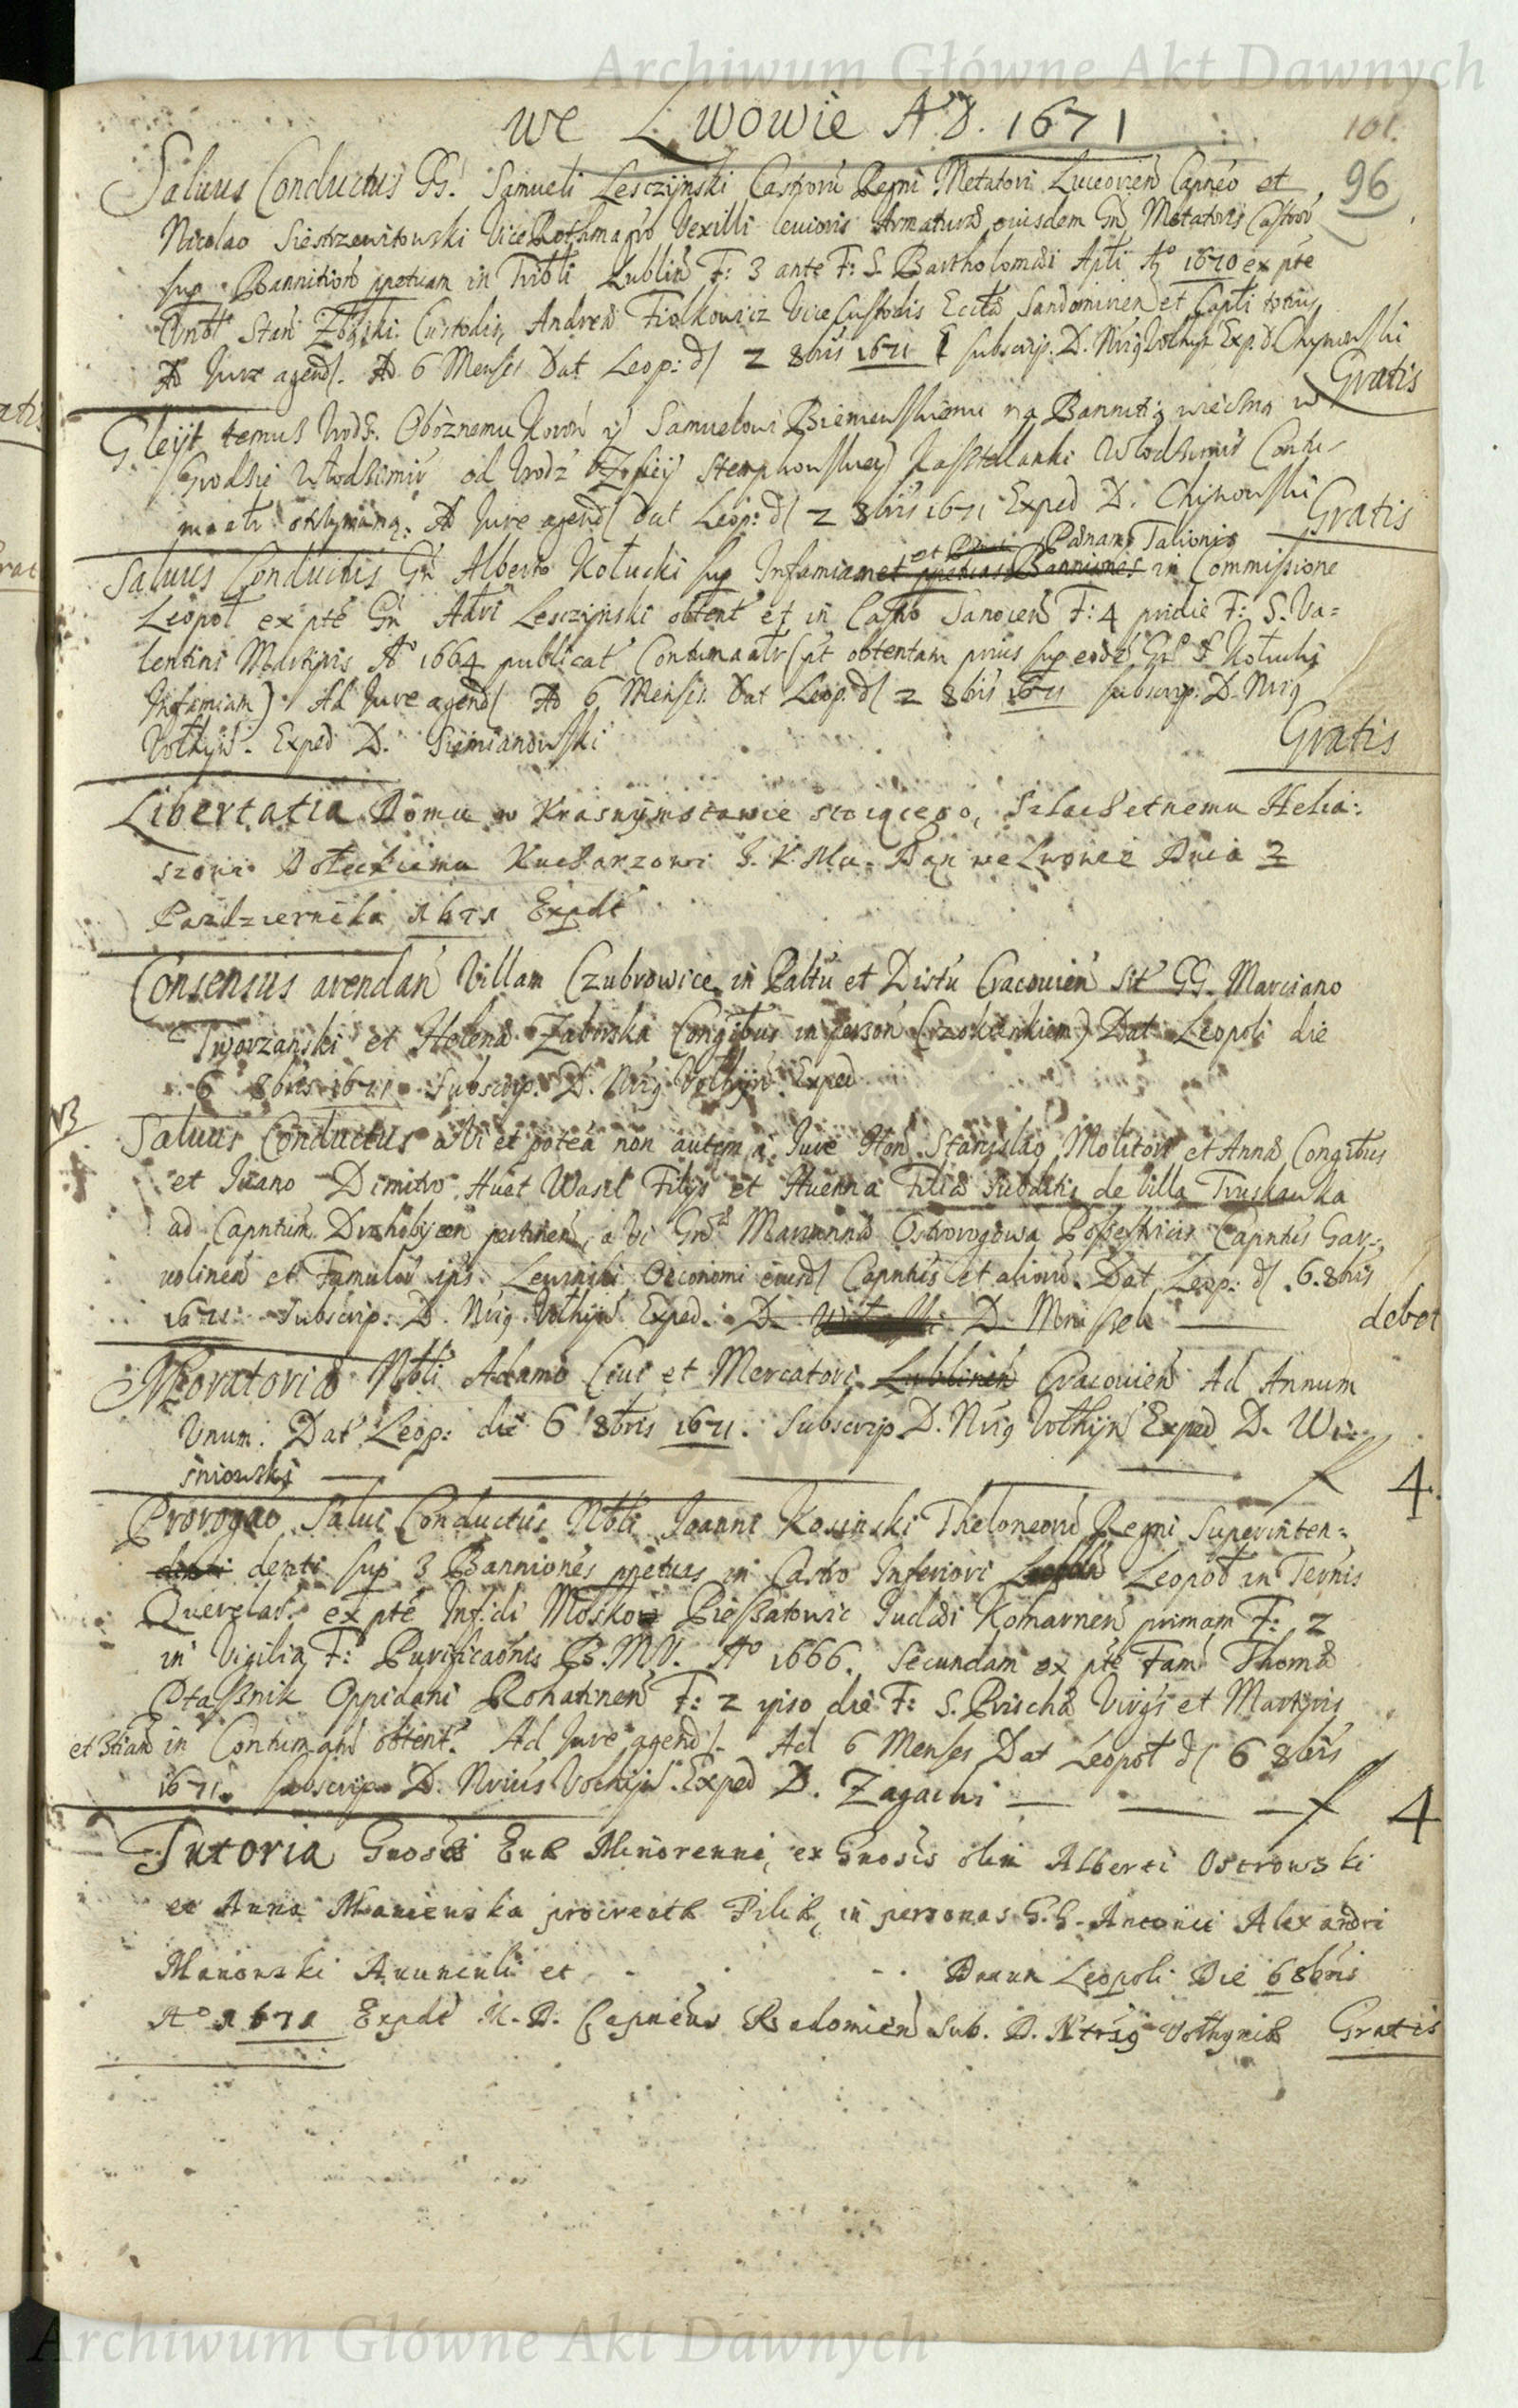 Archiwum Główne Akt Dawnych
we Lwowie A.D. 1671
101.
96
Saluus Conductus GG. Samueli Lesczynski Castrorũ Regni Metatori Luceorien Capneo et
Nicolao Siestrzewitowski ViceRothmagro Vexilli leuioris Armaturæ eiusdem Gn Metatoris Castror
sup Bannition ppetuam in Tribli Lublin F: 3 ante F: S. Bartholomæi Apli Ao 1670 ex pte
Stan Custodis, Andreæ Fiolkowicz ViceCustodis Eccłæ Sandomirien et Capli totius
Ad Jure agend. Ad 6 Menses Dat Leop: d 2 8bris 1671 subscrip. D. Nrig Vothyn Exp. D. Chynowski
Gratis
Gleijt temus Urodz. Oboznemu Koron ij Samuelowi Bieniewskiemu na Bannitią wieczną w
Grodzie Włodzimir od Urodz Zofiey Stempkowskiey Kasztelanki Włodzimir Contu-
maatr otrzymaną. Ad Jure agend dat Leop: d 2 8bris 1671 Exped D. Chynowski
Gratis
et Pænam Talionis
Saluus Conductus Gn Alberto Kołucki sup Infamiam et ppetuas Banniones in Commissione
Leopol ex pte Gn Adri Lesczynski obtent et in Castro Sanocien F: 4 pridie F: S. Va=
lentini Martyris Ao 1664 publicat Contumaatr (pt obtentam prius sup eode Gn Kołucki
Infamiam) Ad Jure agend Ad 6 Menses Dat Leop. d 2 8bris 1671 subscrip. D. Nrig
Vothyn. Exped D. Siemianowski
Gratis
Libertatia Domu w Krasnymstawie stoiącego, Szlachetnemu Helia:
szowi Kucharzowi J. K. Mci. Dan we Lwowie Dnia 2
Pazdziernika 1671 Expdt
Consensus arendan Villam Czubrowice in Paltu et Distu Cracouien sit GG. Marciano
Tworzanski et Helenæ Zaborska Congibus in person Dat Leopoli die
6 8bris 1671 Subscrip. D. Nrig Vothyn. Exped
NB
Saluus Conductus a Vi et potea non autem a Jure Hon Stanislao Molitori et Annæ Congibus
et Juano Dimitro Huat Wasil Filijs et Huenna Filiæ subditis de Villa Truskawka
ad Capntum Drohobycen pertinen, a Vi Gn Mariannæ Ostrorogowa Possestricis Capntus Gar=
uolinen et Famulor ips Oeconomi eiusd Capntus et alior. Dat Leop: d 6. 8bris
1671. Subscrip. D. Nrig Vothyn Exped. D. D. Monissek
debet
Moratoriæ Nobli Adamo Ciui et Mercatori Lublinen Cracouien Ad Annum
Vnum. Dat Leop: die 6 8bris 1671. Subscrip D. Nrig Vothyn Exped D. Wi-
śniowski f 4.
Prorogao Salui Conductus Nobli Joanni Kosinski Theloneorũ Regni Superinten=
denti sup 3 Banniones ppetuas in Castro Inferiori Leopol in Ternis
Querelar. ex pte Infidi Moskowicz Judæi Komarnen primam F: 2
in Vigilia F: Purificaonis B. M. V. Ao 1666. Secundam ex pte Fam Thomæ
Ptaßnik Oppidani Rohatinen F: 2 ipso die F: S. Priscæ Virgis et Martyris
et 3tiam in Contumam obtent. Ad Jure agend. Ad 6 Menses Dat Leopol d 6 8bris
1671. subscrip D. Nrius Vothyn. Exped D. Zagacki f 4
Tutoria Gnosæ Euæ Minorenni, ex Gnosis olim Alberti Ostrowski
et Anna procreatæ Filiæ, in personas G.G. Antonii Alexandri
Manowski Auunculi et - . . - . Datum Leopoli Die 6 8bris
Ao 1671 Expdt M. D. Capneus Radomien Sub. D. Ntrig Vothyniæ Gratis
Archiwum Główne Akt Dawnych